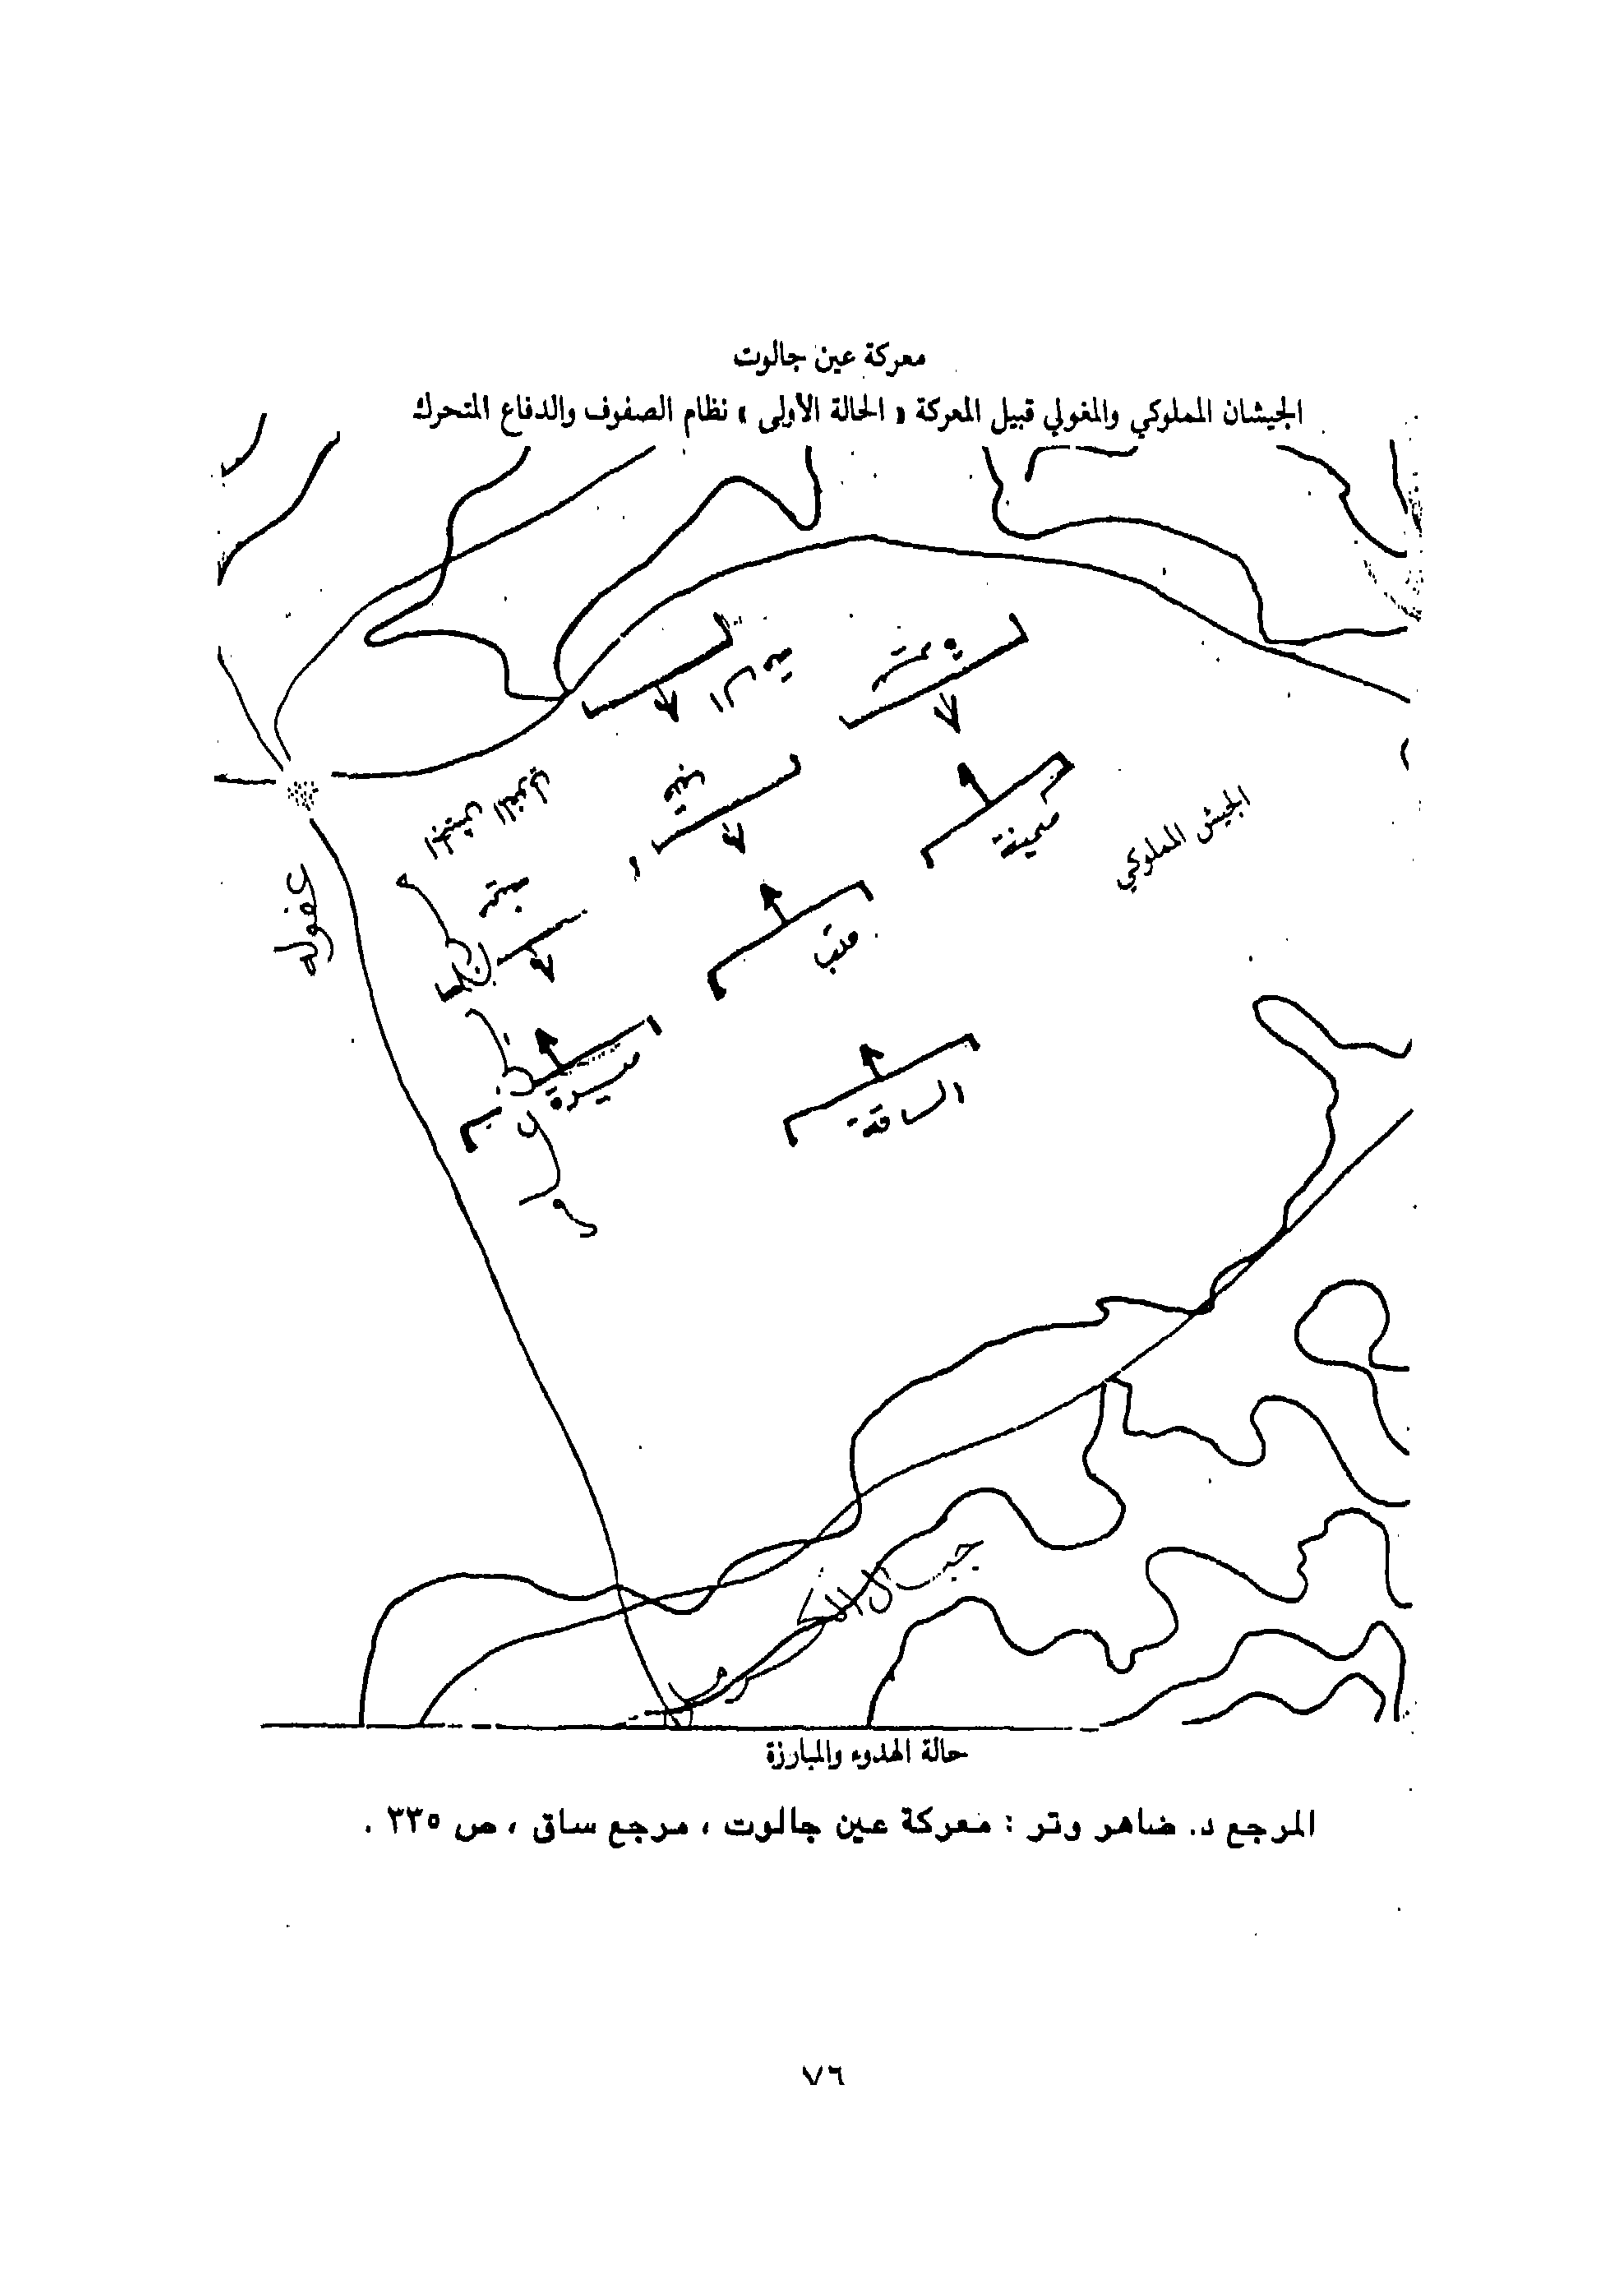 معركة عين جالوت
الجيشان المملوكي والمغولي قبيل المعركة « الحالة الأولى » نظام الصفوف والدفاع المتحرك
الجيش المغولي
ميمنة
الجيش المملوكي
قلب
عفوله
ميسرة
الساقة
جبال
حالة الهدوء والمبارزة
المرجع د. ضاهر وتر : معركة عين جالوت ، مرجع ساق ، ص ٣٣٥ .
٧٦